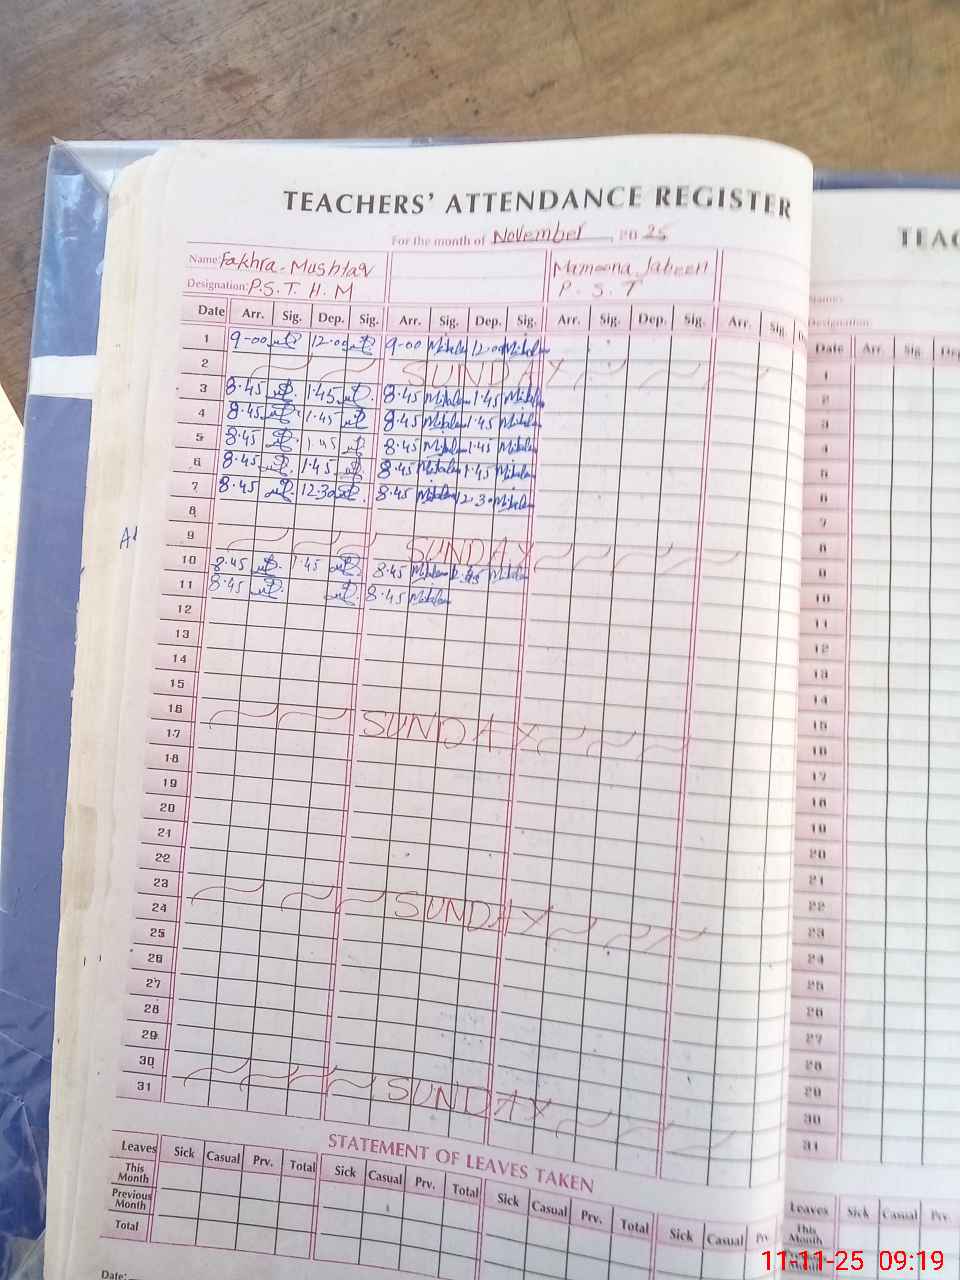 TEACHERS' ATTENDANCE REGISTER
For the month of November, 2025
Name: Fakhra. Mushtaq Mamoona Jabeen
Designation: P.S.T H.M P.S.T
Date Arr. Sig. Dep. Sig. Arr. Sig. Dep. Sig. Arr. Sig. Dep. Sig. Arr. Sig.
1 9-00 12.00 9-00 12.00
2 SUNDAY
3 8.45 1.45 8.45 1.45
4 8.45 1.45 8.45 1.45
5 8.45 1.45 8.45 1.45
6 8.45 1.45 8.45 1.45
7 8.45 12.30 8.45 12.30
8
9 SUNDAY
10 8.45 1.45 8.45
11 8.45 8.45
12
13
14
15
16 SUNDAY
17
18
19
20
21
22
23 SUNDAY
24
25
26
27
28
29
30 SUNDAY
31
STATEMENT OF LEAVES TAKEN
Leaves Sick Casual Prv. Total Sick Casual Prv. Total Sick Casual Prv. Total Sick Casual
This Month
Previous Month
Total
Date:
TEAC
Name:
Designation
Date Arr. Sig. Dep
1
2
3
4
5
6
7
8
9
10
11
12
13
14
15
16
17
18
19
20
21
22
23
24
25
26
27
28
29
30
31
Leaves Sick Casual Prv.
This Month
11-11-25 09:19